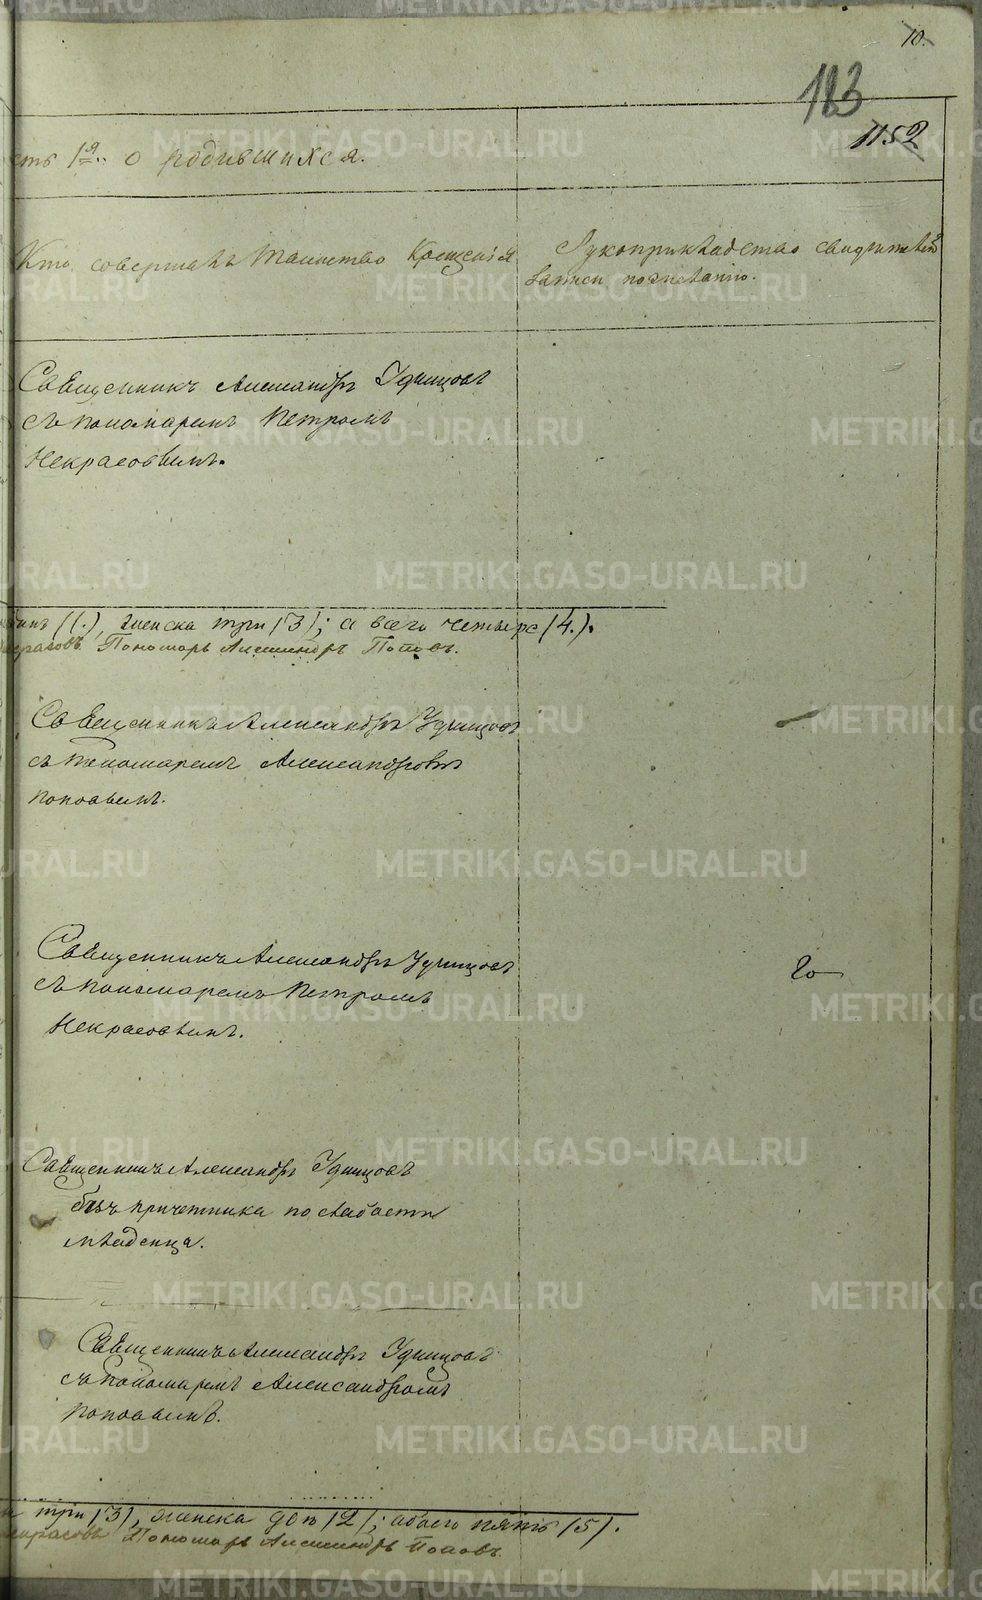 10.
113
1152
сть 1я. о родившихся.
Кто совершалъ таинство Крещенія
Рукоприкладство свидѣтелей
записи по желанію.
Священникъ Александръ Удинцовъ
съ пономаремъ Петромъ
Некрасовымъ.
(1.), женска три (3); а всего четыре (4.).
Некрасовъ. Пономарь Александръ Поповъ.
Священникъ Александръ Удинцовъ
съ пономаремъ Александромъ
Поповымъ.
Священникъ Александръ Удинцовъ
съ пономаремъ Петромъ
Некрасовымъ.
Священникъ Александръ Удинцовъ
безъ причетника по слабости
младенца.
Священникъ Александръ Удинцовъ
съ пономаремъ Александромъ
Поповымъ.
три (3), женска двѣ (2); обоего пять (5).
Некрасовъ Пономарь Александръ Поповъ.
METRIKI.GASO-URAL.RU